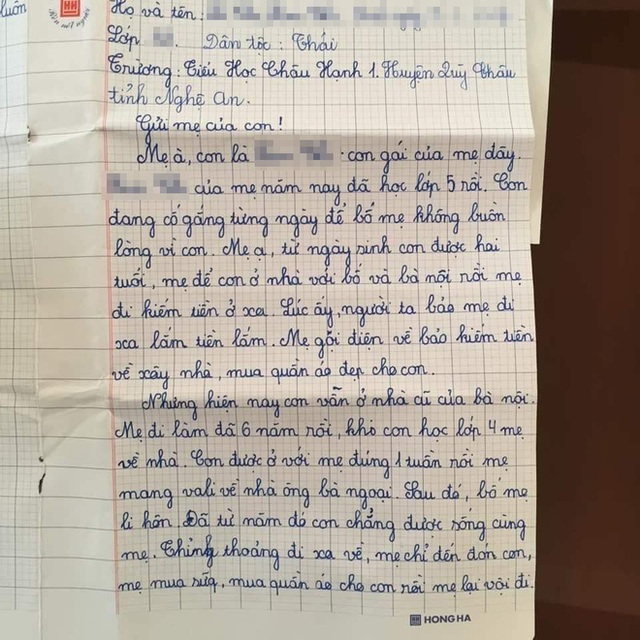 luôn
Họ và tên :
Lớp . Dân tộc : Thái
Trường : Tiểu Học Châu Hạnh 1. Huyện Quỳ Châu
tỉnh Nghệ An.
Gửi mẹ của con !
Mẹ à, con là con gái của mẹ đây.
của mẹ năm nay đã học lớp 5 rồi. Con
đang cố gắng từng ngày để bố mẹ không buồn
lòng vì con. Mẹ ạ, từ ngày sinh con được hai
tuổi, mẹ để con ở nhà với bố và bà nội rồi mẹ
đi kiếm tiền ở xa. Lúc ấy, người ta bảo mẹ đi
xa lắm tiền lắm. Mẹ gọi điện về bảo kiếm tiền
về xây nhà, mua quần áo đẹp cho con.
Nhưng hiện nay con vẫn ở nhà cũ của bà nội.
Mẹ đi làm đã 6 năm rồi, khi con học lớp 4 mẹ
về nhà. Con được ở với mẹ đúng 1 tuần rồi mẹ
mang vali về nhà ông bà ngoại. Sau đó, bố mẹ
li hôn. Đã từ năm đó con chẳng được sống cùng
mẹ. Thỉnh thoảng đi xa về, mẹ chỉ đến đón con,
mẹ mua sữa, mua quần áo cho con rồi mẹ lại vội đi.
HONG HA